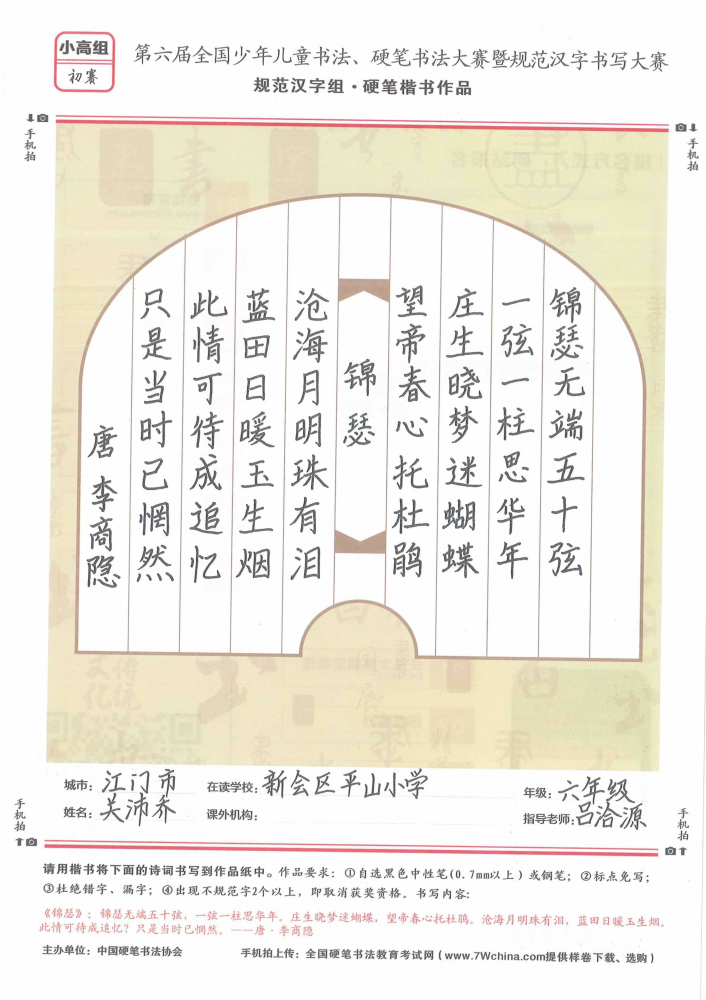 小高组
初赛
第六届全国少年儿童书法、硬笔书法大赛暨规范汉字书写大赛
规范汉字组·硬笔楷书作品
手机拍
手机拍
锦瑟无端五十弦
一弦一柱思华年
庄生晓梦迷蝴蝶
望帝春心托杜鹃
锦瑟
沧海月明珠有泪
蓝田日暖玉生烟
此情可待成追忆
只是当时已惘然
唐 李商隐
城市：江门市 在读学校：新会区平山小学 年级：六年级
姓名：关沛乔 课外机构： 指导老师：吕洽源
手机拍
手机拍
请用楷书将下面的诗词书写到作品纸中。作品要求：①自选黑色中性笔(0.7mm以上)或钢笔；②标点免写；
③杜绝错字、漏字；④出现不规范字2个以上，即取消获奖资格。书写内容：
《锦瑟》：锦瑟无端五十弦，一弦一柱思华年。庄生晓梦迷蝴蝶，望帝春心托杜鹃。沧海月明珠有泪，蓝田日暖玉生烟。
此情可待成追忆？只是当时已惘然。——唐·李商隐
主办单位：中国硬笔书法协会 手机拍上传：全国硬笔书法教育考试网（www.7Wchina.com提供样卷下载、选购）